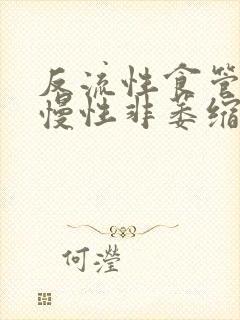 反流性食管
慢性非萎缩
何瀅